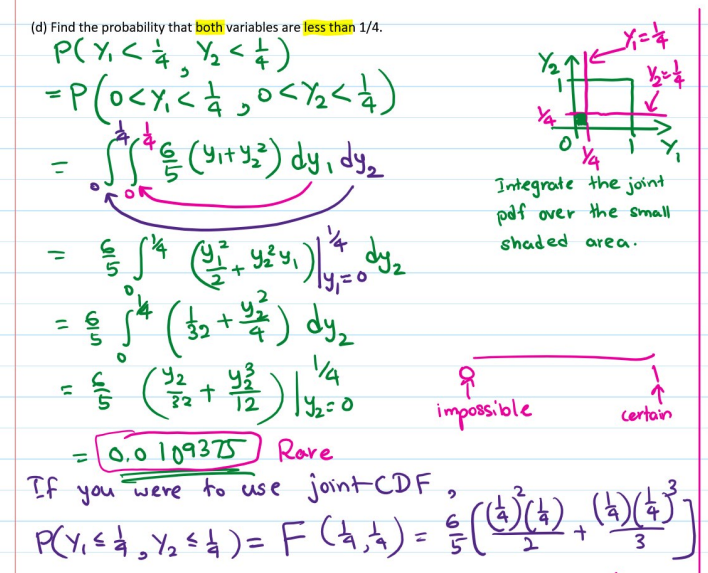 (d) Find the probability that both variables are less than 1/4.
P(Y₁ < 1/4, Y₂ < 1/4)
= P(0 < Y₁ < 1/4, 0 < Y₂ < 1/4)
= ∫₀^{1/4} ∫₀^{1/4} 6/5 (y₁ + y₂²) dy₁ dy₂
= 6/5 ∫₀^{1/4} (y₁²/2 + y₂² y₁) |_{y₁=0}^{1/4} dy₂
= 6/5 ∫₀^{1/4} (1/32 + y₂²/4) dy₂
= 6/5 (y₂/32 + y₂³/12) |_{y₂=0}^{1/4}
= 0.0109375 Rare
Y₁ = 1/4
Y₂
1
Y₂ = 1/4
1/4
0
1/4
1
Y₁
Integrate the joint
pdf over the small
shaded area.
0
1
impossible
certain
If you were to use joint CDF,
P(Y₁ ≤ 1/4, Y₂ ≤ 1/4) = F(1/4, 1/4) = 6/5 [(1/4)²(1/4)/2 + (1/4)(1/4)³/3]